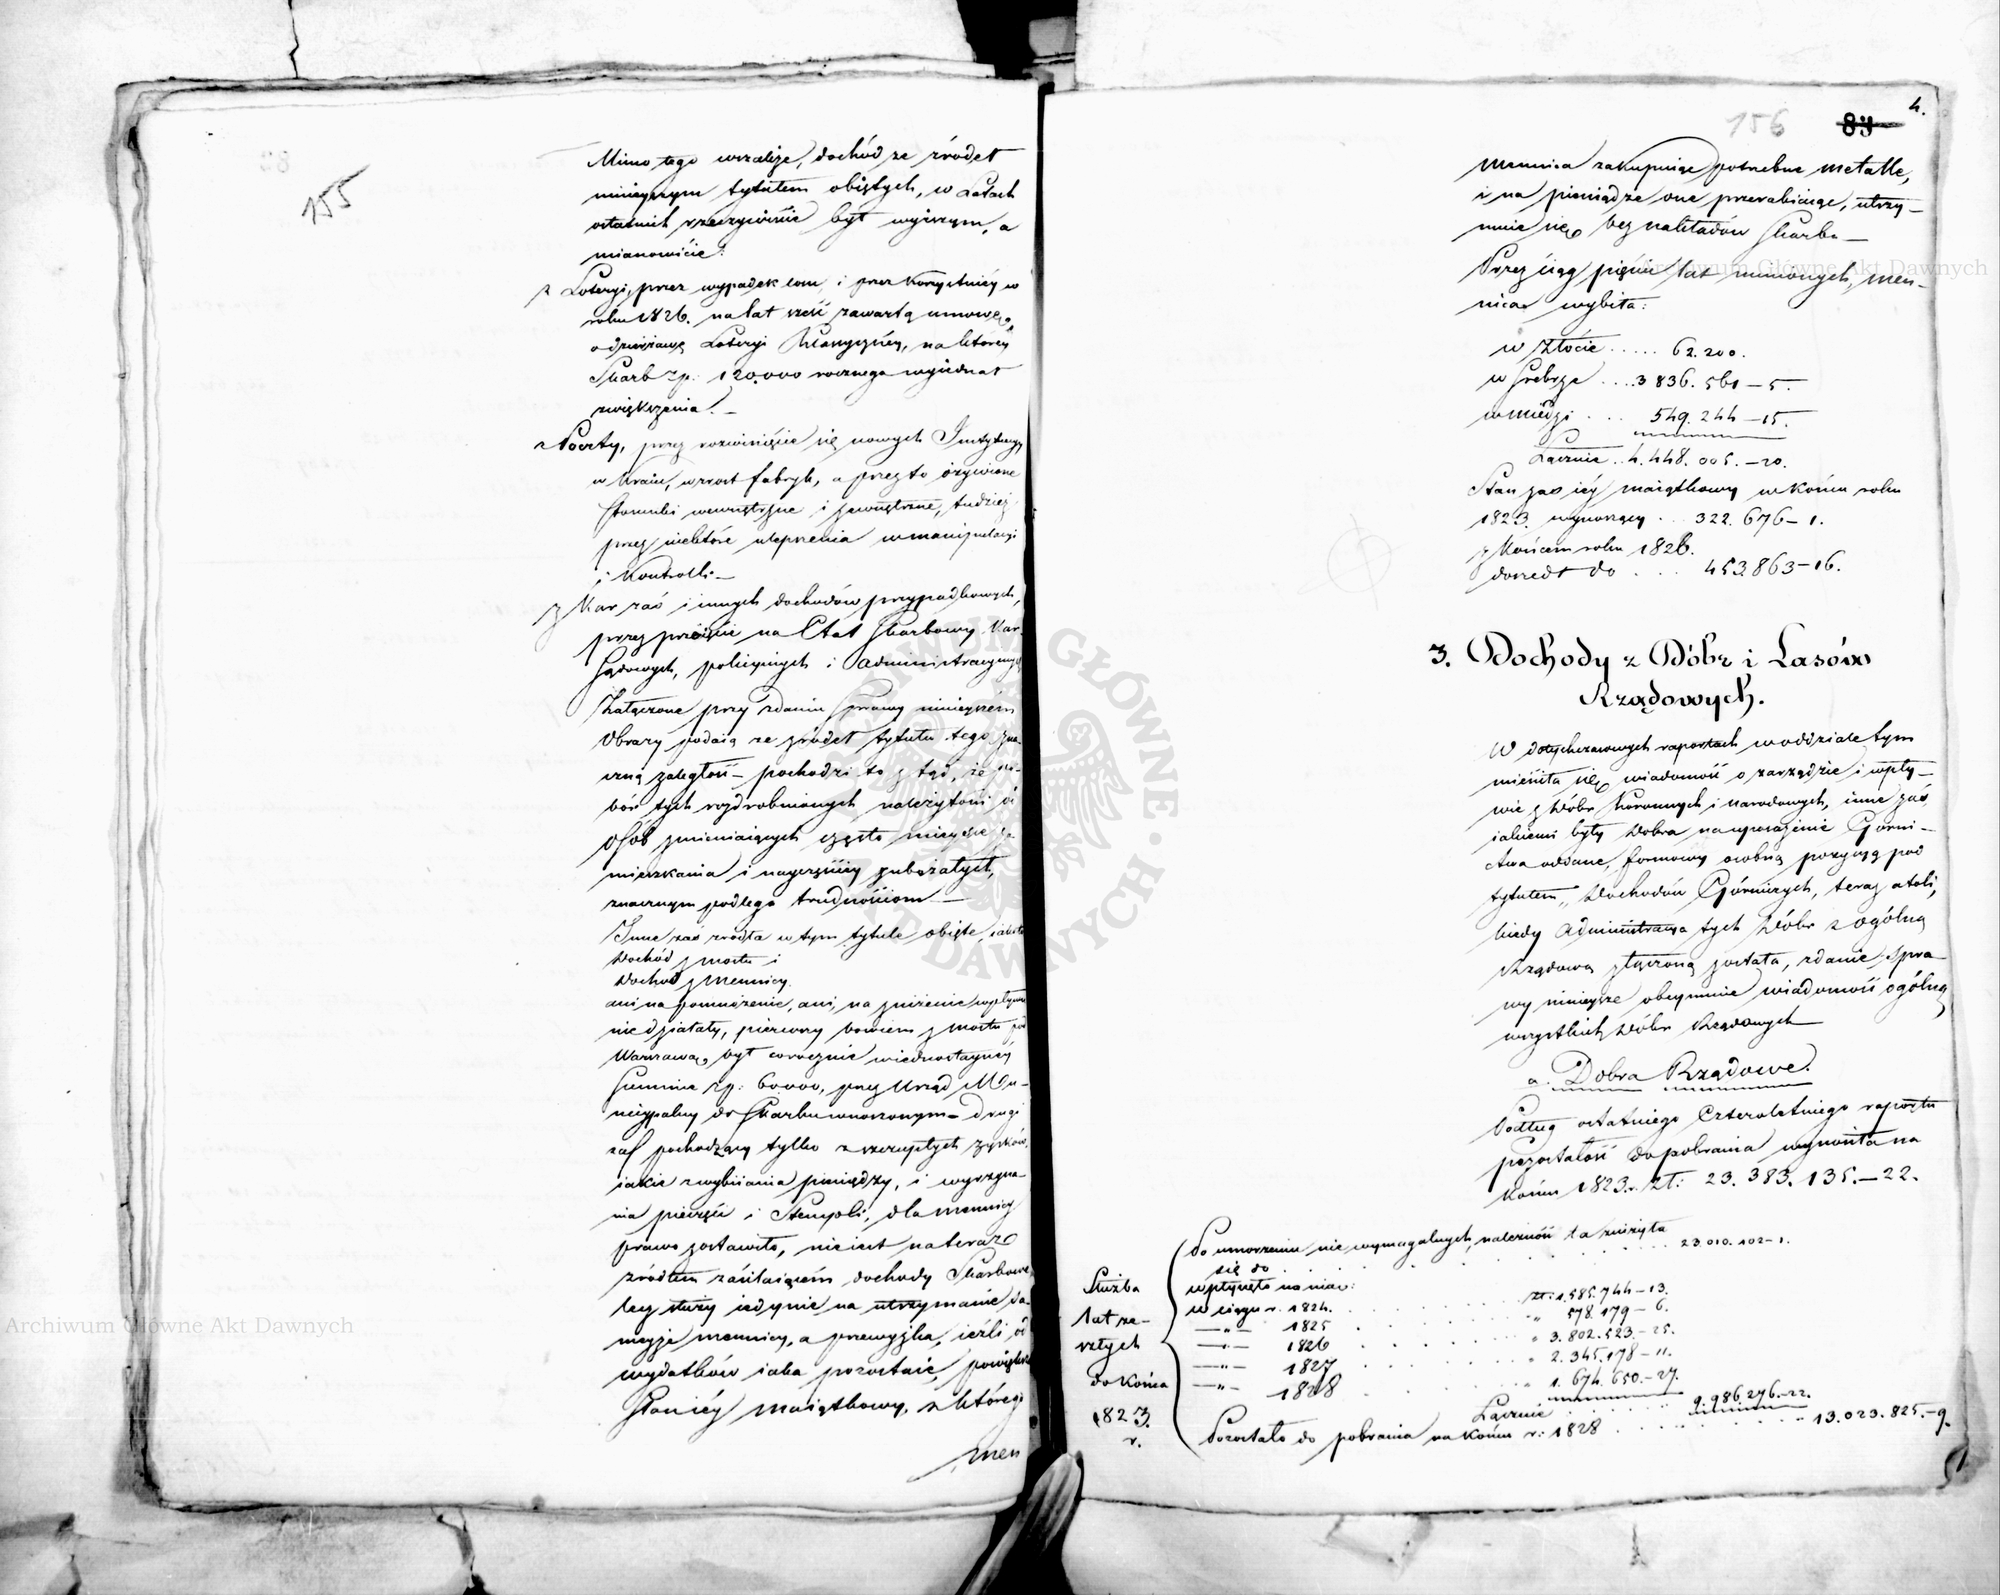 155
Mimo tego wszelże, dochód ze źródeł
ninieyszym tytułem obiętych, w Latach
ostatnich rzeczywiście był wyższym, a
mianowicie:
z Loteryi, przez wypadek losu, i przez korzystniey w
roku 1826. na lat sześć zawartą umowę
o dzierżawę Loteryi Klassyczney, na którey
Skarb zp: 120.000 rocznego wyiednał
zwiększenia. —
z Poczty, przez rozwinięcie się nowych Instytucyi
w Kraiu, wzrost fabryk, a przez to ożywione
stosunki wewnętrzne i zewnętrzne, tudzież
przez niektóre ulepszenia w manipulacyi
i Kontrolli —
z Kar zaś i innych dochodów przypadkowych,
przez przeyście na Etat Skarbowy Kar
Sądowych, policyinych i administracyinych
Załączone przy zdaniu Sprawy ninieyszém
Obrazy podaią ze źródeł tytułu tego zna-
czną zaległość — pochodzi to z tąd, że po-
bór tych rozdrobnionych należytości od
osób zmieniaiących często mieysce za-
mieszkania i nayczęściey zubożałych,
znacznym podlega trudnościom —
Inne zaś źródła w tym tytule obięte, iakoto
Dochód z mostu i
Dochód z Mennicy.
ani na pomnożenie, ani na zniżenie wpływu
nie działały, pierwszy bowiem z mostu pod
Warszawą, był corocznie w iednostayney
Summie zp: 60000, przez Urząd Mu-
nicypalny do Skarbu wnoszonym — Drugi
zaś pochodzący tylko z szczupłych zysków,
iakie z wybiiania pieniędzy, i wyrzyna-
nia pieczęci i Stempli, dla mennicy
prawo zostawiło, nie iest na teraz
źródłem zasilaiącem dochody Skarbowe
lecz służy iedynie na utrzymanie sa-
meyże mennicy, a przewyżka, ieżli od
wydatków iaka pozostaie, powiększa
stan iéy maiątkowy, z którego
men
4.
156 83
mennica zakupuiąc potrzebne metalle,
i na pieniądze one przerabiaiąc, utrzy-
muie się bez nakładów Skarbu —
Przez ciąg pięciu lat minionych, men-
nica wybiła:
w Złocie ..... 62.200.
w Srebrze .... 3 836. 561 — 5.
w miedzi ... 549. 244 — 15.
Łącznie .. 4. 448. 005. — 20.
Stan zaś iéy maiątkowy w końcu roku
1823. wynoszący ... 322. 676 — 1.
z końcem roku 1828.
doszedł do .... 453.863 — 16.
3. Dochody z Dóbr i Lasów
Rządowych.
W dotychczasowych raportach w oddziale tym
mieściła się wiadomość o zarządzie i wpły-
wie z Dóbr Koronnych i narodowych, inne zaś
iakiemi były Dobra na uposażenie Górni-
ctwa oddane, formowały osobną pozycyą pod
tytułem „Dochodów Górniczych, teraz atoli,
kiedy administracya tych Dóbr z ogólną
Rządową złączoną została, zdanie Spra-
wy ninieysze obeymuie wiadomość ogólną
wszystkich Dóbr Rządowych —
a. Dobra Rządowe.
Podług ostatniego Czteroletniego raportu
pozostałość do pobrania wynosiła na
końcu 1823. r. zł: 23. 383. 135. — 22.
Służba
lat ze-
szłych
do końca
1823.
r.
Po umorzeniu nie wymagalnych, należność ta zniżyła
się do ........ 23.010.102 — 1.
wpłynęło na nią:
w ciągu r. 1824. .... zł: 1.585.744 — 13.
— „ — 1825 .... „ 578.179 — 6.
— „ — 1826 .... „ 3.802.523. — 25.
— „ — 1827 .... „ 2.345.178 — 11.
— „ — 1828 .... „ 1.674.650. — 27.
Łącznie .... 9.986.276. — 22.
Pozostało do pobrania na końcu r: 1828 .... „ 13.023.825. — 9.
Archiwum Główne Akt Dawnych
Archiwum Główne Akt Dawnych
ARCHIWUM GŁÓWNE AKT DAWNYCH